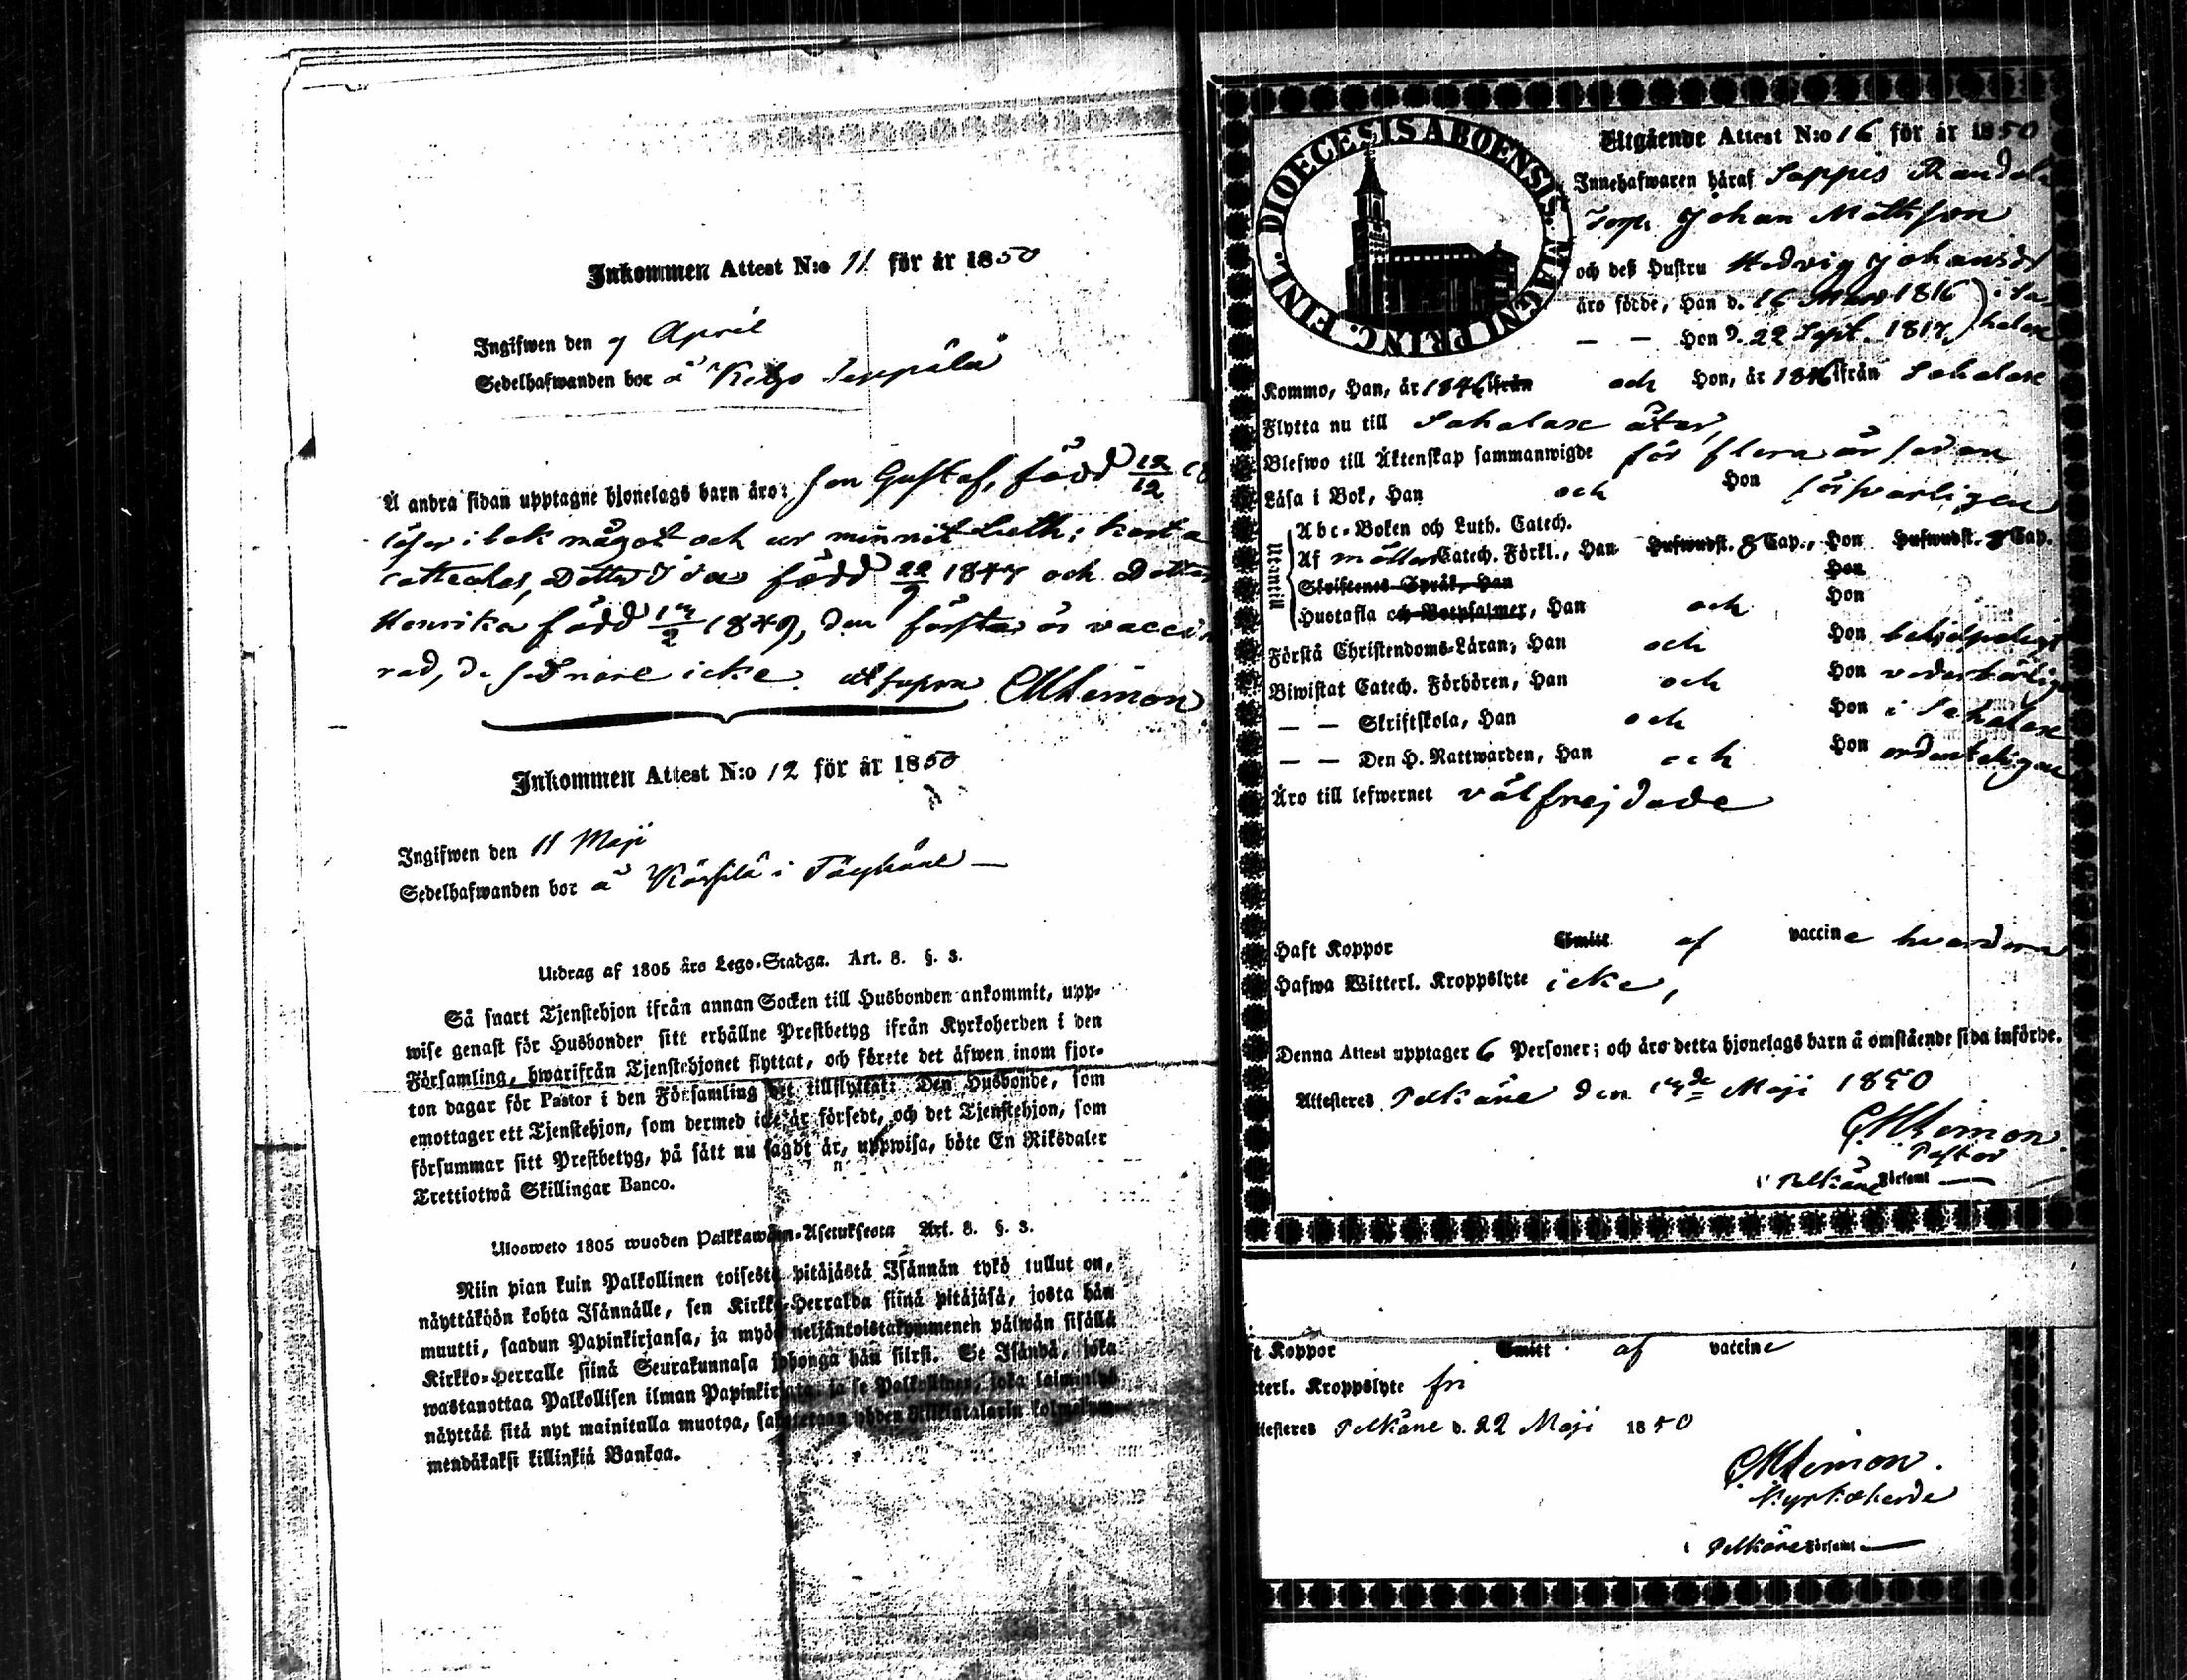 Inkommen Attest N:o 11 för år 1850
Ingifwen den 7 April
Sedelhafwanden bor å Kelpo Seppälä
Å andra sidan upptagne hjonelags barn äro: son Gustaf, född 12/12 18
läser i bok något och ur minnet Luth: korta
catteches, Dotter Ida född 22/9 1847 och Dotter
Henrika född 17/2 1849, den första är vacci
rad, de sednare icke. ut supra CMLemon
Inkommen Attest N:o 12 för år 1850
Ingifwen den 11 Maji
Sedelhafwanden bor å Kärfilä i
Utdrag af 1805 års Lego-Stadga. Art. 8. §. 3.
Så snart Tjenstehjon ifrån annan Socken till Husbonden ankommit, upp-
wise genast för Husbonden sitt erhållne Prestbetyg ifrån Kyrkoherden i den
Församling, hwarifrån Tjenstehjonet flyttat, och förete det äfwen inom fjor-
ton dagar för Pastor i den Församling det tillflyttat: Den Husbonde, som
emottager ett Tjenstehjon, som dermed icke är försedt, och det Tjenstehjon, som
försummar sitt Prestbetyg, på sätt nu sagdt är, uppwisa, böte En Riksdaler
Trettiotwå Skillingar Banco.
Ulosweto 1805 wuoden Palkkawäen-Asetuksesta Art. 8. §. 3.
Niin pian kuin Palkollinen toisesta pitäjästä Isännän tykö tullut on,
näyttäköön kohta Isännälle, sen Kirkko-Herralda siinä pitäjäsä, josta hän
muutti, saadun Papinkirjansa, ja myös neljäntoistakymmenen päiwän sisällä
Kirkko-Herralle siinä Seurakunnasa johonga hän siirsi. Se Isändä, joka
wastanottaa Palkollisen ilman Papinkirjata ja se Palkollinen, joka laiminlyö
näyttää sitä nyt mainitulla muotoa, sakotetaan yhden Riikintalarin kolmekym-
mendäkaksi killinkiä Bankoa.
DIOECESIS ABOENSIS. MAGNI PRINC. FINL.
Utgående Attest N:o 16 för år 1850
Innehafwaren häraf Sappis Randala
Torp. Johan Mattsson
och deß Hustru Hedvig Johansdr
äro födde, Han d. 16 Mars 1816 i Sa-
— — Hon d. 22 Sept. 1817 halax
Kommo, Han, år 1846 ifrån och Hon, år 1846 ifrån Sahalax
Flytta nu till Sahalax åter,
Blefwo till Äktenskap sammanwigde för flera år sedan
Läsa i Bok, Han och Hon försvarligen
Utantill
Abc-Boken och Luth. Catech.
Af möllers Catech. Förkl., Han Hufwudst. 8 Cap., Hon Hufwudst. 8 Cap.
Skriftenes Språk, Han Hon
Hustafla och Botpsalmer, Han och Hon
Förstå Christendoms-Läran, Han och Hon behjelpeligt
Biwistat Catech. Förhören, Han och Hon vederbörligen
— — Skriftskola, Han och Hon i Sahalax
— — Den H. Nattwarden, Han och Hon ordenteligen
Äro till lefwernet välfrejdade
Haft Koppor Smitt af vaccine hvardera
Hafwa Witterl. Kroppslyte icke,
Denna Attest upptager 6 Personer; och äro detta hjonelags barn å omstående sida införde.
Attesteres Pelkäne den 17de Maji 1850
CMLemon
Pastor
i Pelkäne Församl
ft Koppor Smitt af vaccine
tterl. Kroppslyte fri
ttesteres Pelkäne d. 22 Maji 1850
CMLemon.
Kyrkoherde
i Pelkäne Församl